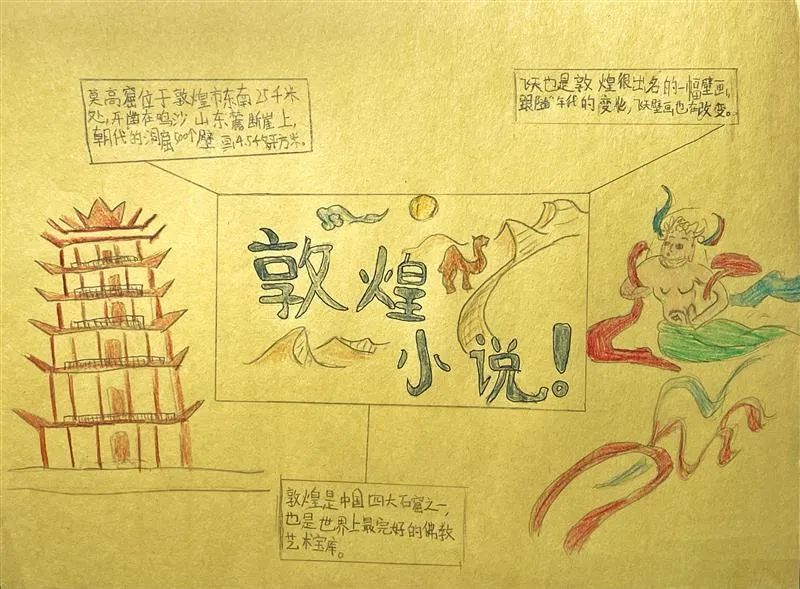 莫高窟位于敦煌市东南25千米
处,开凿在鸣沙山东麓断崖上,
朝代的洞窟500个壁画平方米。
飞天也是敦煌很出名的一幅壁画,
跟随年代的变化,飞天壁画也在改变。
敦煌
小说!
敦煌是中国四大石窟之一,
也是世界上最完好的佛教
艺术宝库。